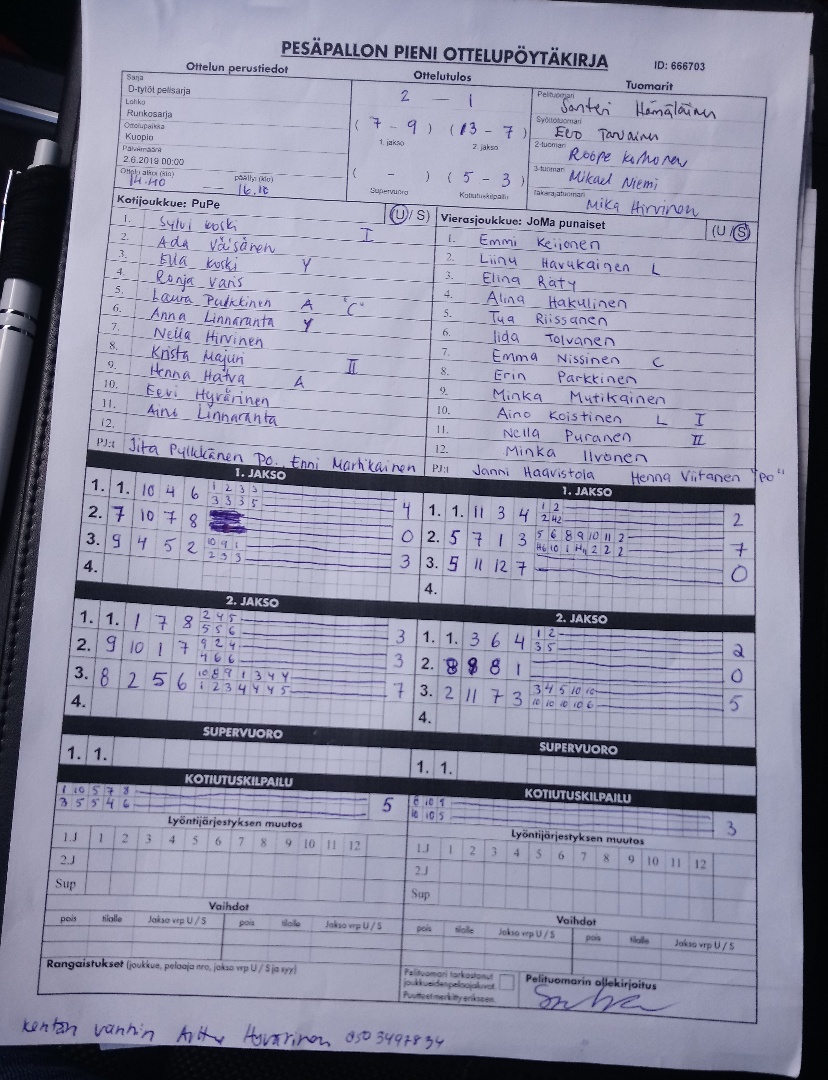 PESÄPALLON PIENI OTTELUPÖYTÄKIRJA
ID: 666703
Ottelun perustiedot
Ottelutulos
Tuomarit
Sarja
D-tytöt pelisarja
Lohko
Runkosarja
Ottelupaikka
Kuopio
Päivämäärä
2.6.2019 00:00
Ottelu alkoi (klo) päättyi (klo)
14.40 — 16.10
2 — 1
( 7 - 9 ) ( 13 - 7 )
1. jakso 2. jakso
( - ) ( 5 - 3 )
Supervuoro Kotiutuskilpailu
Pelituomari
Santeri Hämäläinen
Syöttötuomari
Eero Tarvainen
2-tuomari
Roope Korhonen
3-tuomari
Mikael Niemi
Takarajatuomari
Mika Hirvinen
Kotijoukkue: PuPe (U / S)
1. Sylvi Koski I
2. Ada Väisänen
3. Ella Koski Y
4. Ronja Varis
5. Laura Pulkkinen A "C"
6. Anna Linnaranta Y
7. Nella Hirvinen
8. Krista Majuri II
9. Henna Hatva A
10. Eevi Hyvärinen
11. Aino Linnaranta
12.
PJ:t Jita Pylkkänen Po., Enni Martikainen
Vierasjoukkue: JoMa punaiset (U / S)
1. Emmi Keijonen
2. Liinu Havukainen L
3. Elina Räty
4. Alina Hakulinen
5. Tua Riissanen
6. Iida Tolvanen
7. Emma Nissinen C
8. Erin Parkkinen
9. Minka Mutikainen
10. Aino Koistinen L I
11. Nella Puranen II
12. Minka Ilvonen
PJ:t Janni Haavistola Henna Viitanen "Po"
1. JAKSO
1. 1. 10 4 6 1 2 3 3
3 3 3 5 4
2. 7 10 7 8 0
3. 9 4 5 2 10 9 1
2 3 3 3
4.
1. JAKSO
1. 1. 11 3 4 1 2
2 H2 2
2. 5 7 1 3 5 6 8 9 10 11 2
H6 10 1 H9 2 2 2 7
3. 5 11 12 7 0
4.
2. JAKSO
1. 1. 1 7 8 2 4 5
5 5 6 3
2. 9 10 1 7 9 2 4
4 6 6 3
3. 8 2 5 6 10 8 9 1 3 4 4
1 2 3 4 4 4 5 7
4.
2. JAKSO
1. 1. 3 6 4 1 2
3 5 2
2. 8 8 8 1 0
3. 2 11 7 3 3 4 5 10 10
10 10 10 10 6 5
4.
SUPERVUORO
1. 1.
SUPERVUORO
1. 1.
KOTIUTUSKILPAILU
1 10 5 7 8
3 5 5 4 6 5
KOTIUTUSKILPAILU
6 10 9
10 10 5 3
Lyöntijärjestyksen muutos
1.J 1 2 3 4 5 6 7 8 9 10 11 12
2.J
Sup
Lyöntijärjestyksen muutos
1.J 1 2 3 4 5 6 7 8 9 10 11 12
2.J
Sup
Vaihdot
pois tilalle Jakso vrp U / S pois tilalle Jakso vrp U / S
Vaihdot
pois tilalle Jakso vrp U / S pois tilalle Jakso vrp U / S
Rangaistukset (joukkue, pelaaja nro, jakso vrp U / S ja syy)
Pelituomari tarkastanut
joukkueiden pelaajaluvat.
Puutteet merkitty erikseen.
Pelituomarin allekirjoitus
kentän vanhin Arttu Hyvärinen 050 3497834